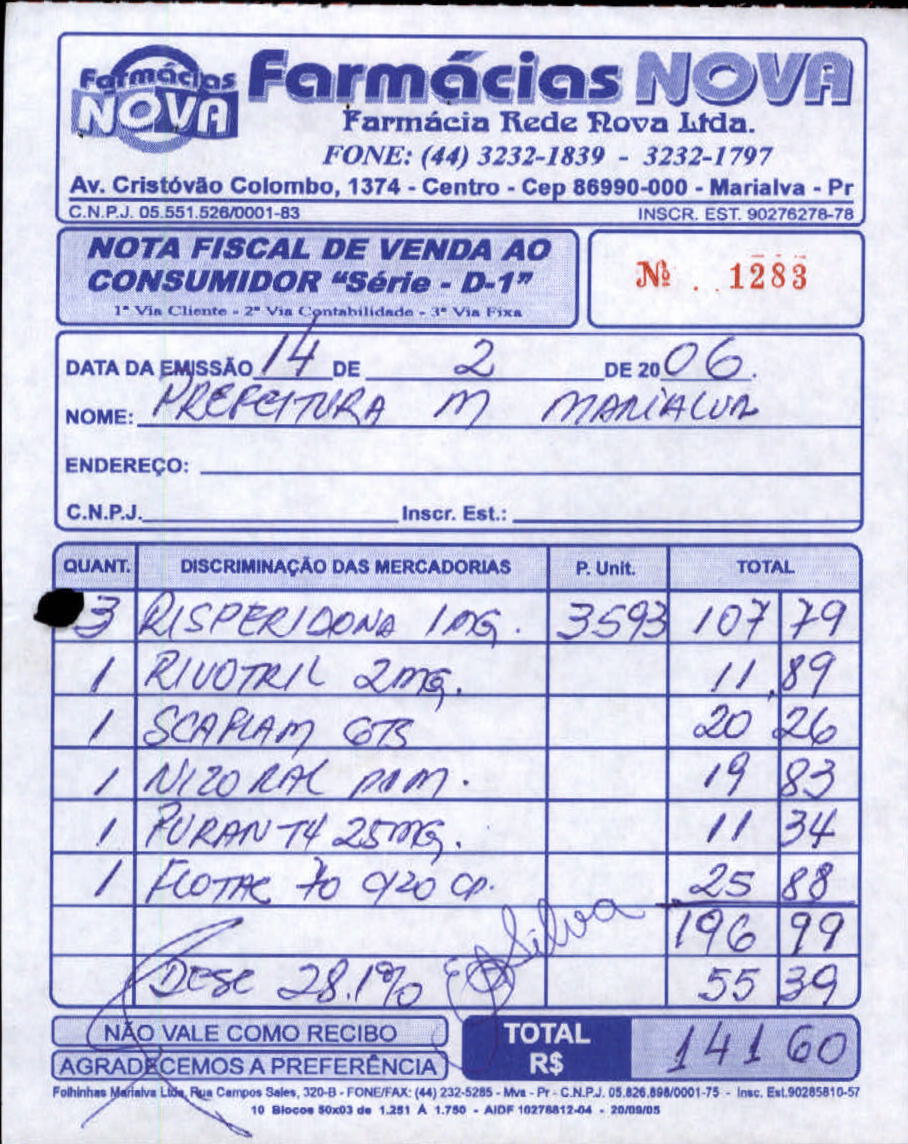 Farmácias NOVA Farmácias NOVA
Farmácia Rede Nova Ltda.
FONE: (44) 3232-1839 - 3232-1797
Av. Cristóvão Colombo, 1374 - Centro - Cep 86990-000 - Marialva - Pr
C.N.P.J. 05.551.526/0001-83 INSCR. EST. 90276278-78
NOTA FISCAL DE VENDA AO
CONSUMIDOR "Série - D-1"
1ª Via Cliente - 2ª Via Contabilidade - 3ª Via Fixa
Nº 1283
DATA DA EMISSÃO 14 DE 2 DE 2006.
NOME: PREFEITURA M MARIALVA
ENDEREÇO:
C.N.P.J. Inscr. Est.:
QUANT. DISCRIMINAÇÃO DAS MERCADORIAS P. Unit. TOTAL
3 RISPERIDONA 1MG. 3593 107 79
1 RIVOTRIL 2MG. 11,89
1 SCAFLAM GTS 20 26
1 NIZORAL 19 83
1 PURAN T4 25MG. 11 34
1 FLOTAC 70 C/20 CP. 25 88
196 99
DESC 28.1% Silva 55 39
NÃO VALE COMO RECIBO
AGRADECEMOS A PREFERÊNCIA
TOTAL R$ 141 60
Folhinhas Marialva Ltda, Rua Campos Sales, 320-B - FONE/FAX: (44) 232-5285 - Mva - Pr - C.N.P.J. 05.826.898/0001-75 - Insc. Est.90285810-57
10 Blocos 50x03 de 1.251 À 1.750 - AIDF 10276812-04 - 20/09/05